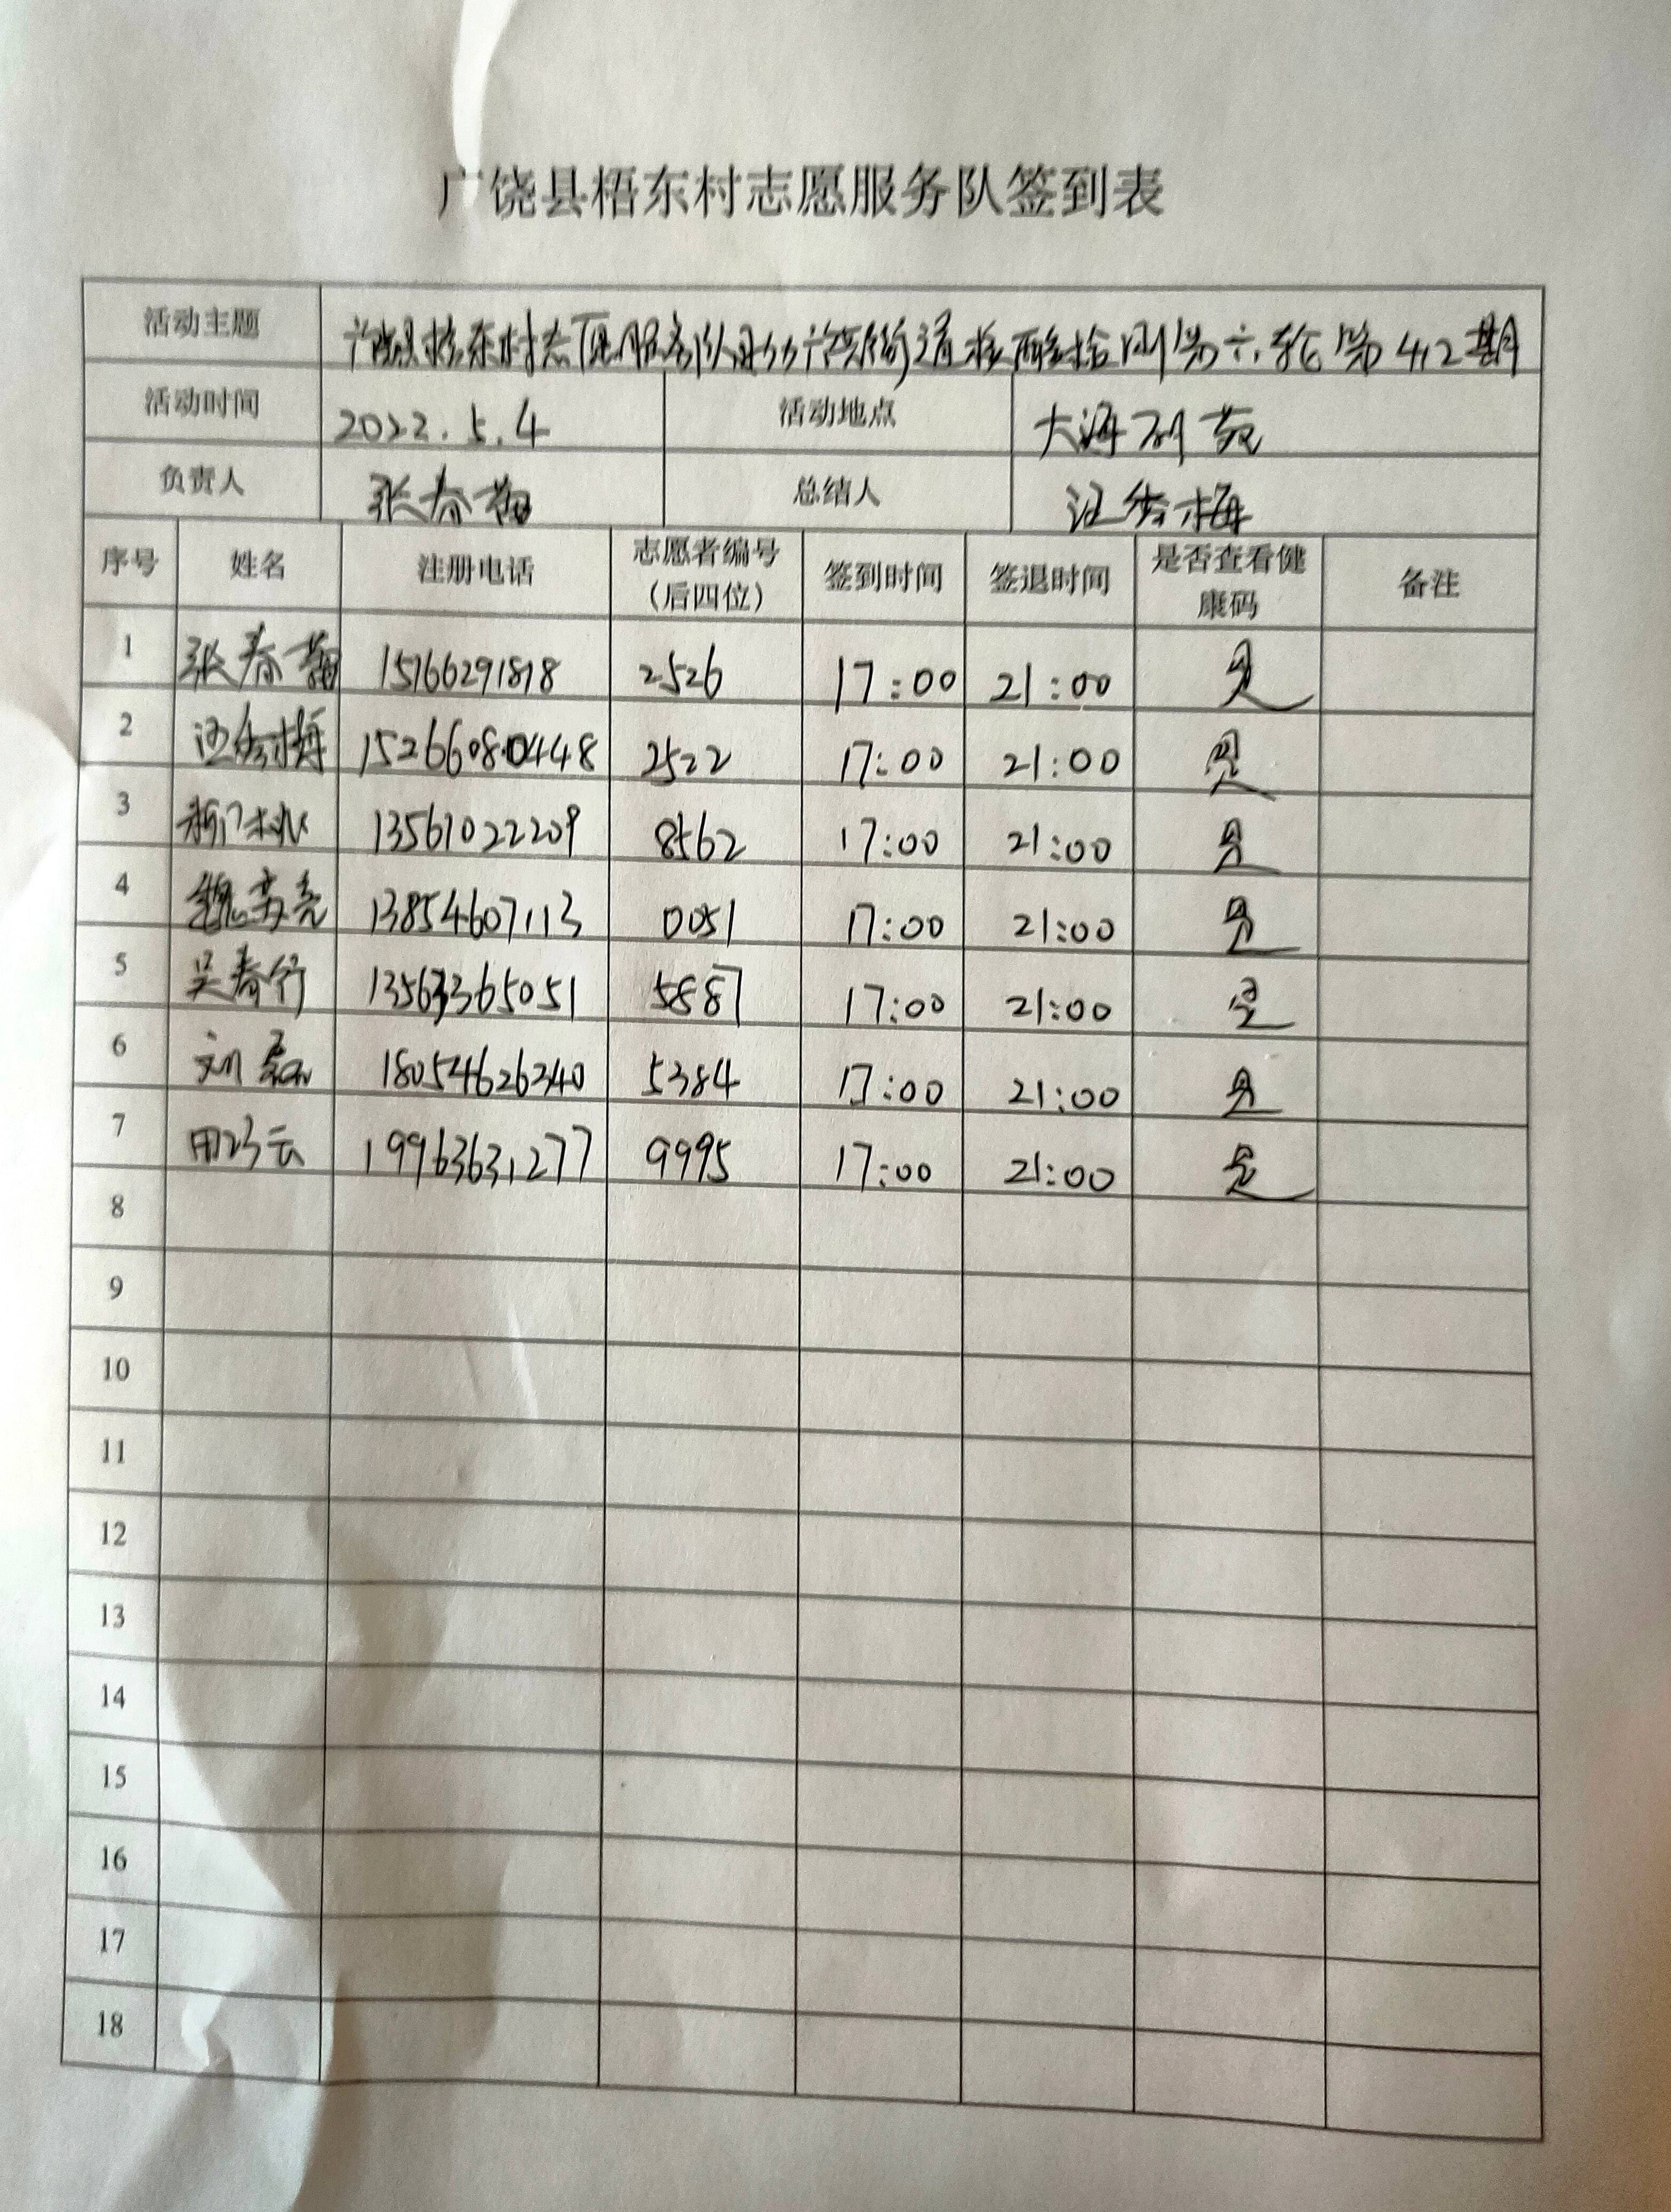 广饶县梧东村志愿服务队签到表
活动主题 广饶县梧东村志愿服务队 广饶街道核酸检测第六轮第412期
活动时间 2022.5.4 活动地点 大海
负责人 张春 总结人 梅
序号 姓名 注册电话 志愿者编号（后四位） 签到时间 签退时间 是否查看健康码 备注
1 张春 15766291818 2526 17:00 21:00 是
2 梅 15266080448 2522 17:00 21:00 是
3 13561022209 8562 17:00 21:00 是
4 魏 亮 13854607113 0051 17:00 21:00 是
5 吴春竹 13563365051 5887 17:00 21:00 是
6 刘磊 18054626340 5384 17:00 21:00 是
7 周巧云 19963631277 9995 17:00 21:00 是
8
9
10
11
12
13
14
15
16
17
18